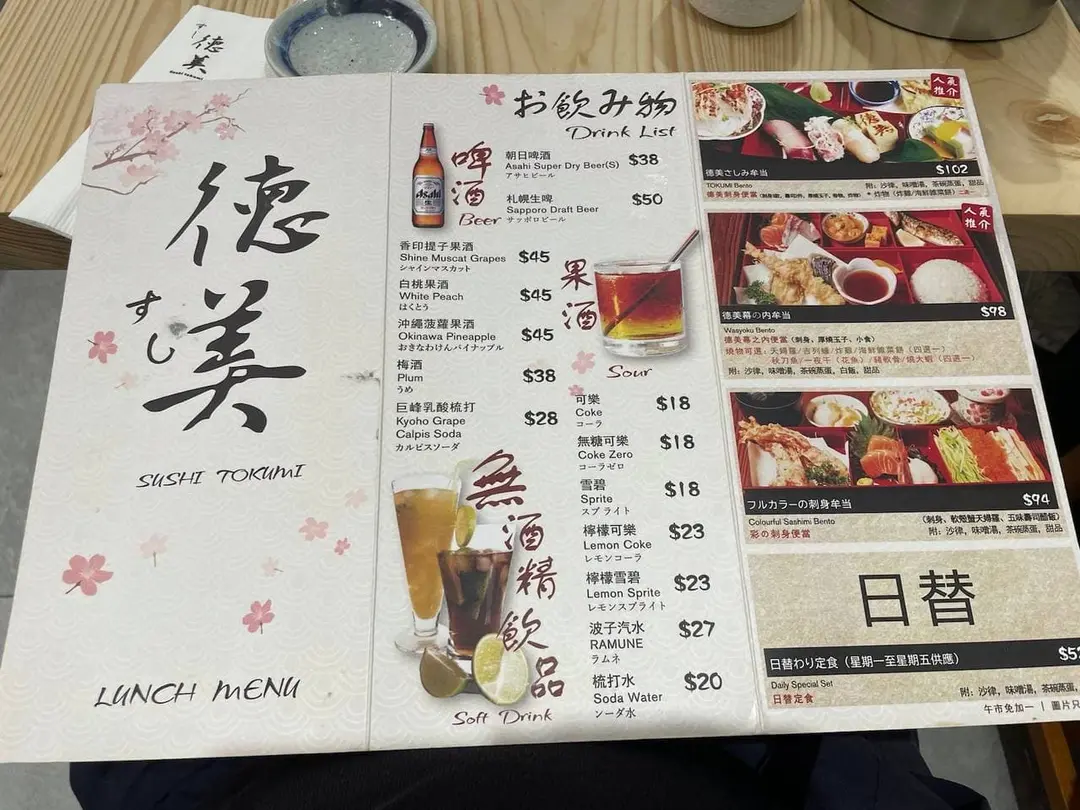 すし
德美
Sushi Tokumi
德
美
すし
SUSHI TOKUMI
LUNCH MENU
お飲み物
Drink List
啤酒
Beer
Asahi
朝日啤酒
Asahi Super Dry Beer(S) $38
アサヒビール
札幌生啤
Sapporo Draft Beer $50
サッポロビール
香印提子果酒
Shine Muscat Grapes $45
シャインマスカット
白桃果酒
White Peach $45
はくとう
沖繩菠蘿果酒
Okinawa Pineapple $45
おきなわけんパイナップル
梅酒
Plum $38
うめ
巨峰乳酸梳打
Kyoho Grape $28
Calpis Soda
カルピスソーダ
果酒
Sour
無酒精飲品
Soft Drink
可樂
Coke $18
コーラ
無糖可樂
Coke Zero $18
コーラゼロ
雪碧
Sprite $18
スプライト
檸檬可樂
Lemon Coke $23
レモンコーラ
檸檬雪碧
Lemon Sprite $23
レモンスプライト
波子汽水
RAMUNE $27
ラムネ
梳打水
Soda Water $20
ソーダ水
人氣
推介
德美さしみ弁当 $102
TOKUMI Bento 附：沙律，味噌湯，茶碗蒸蛋，甜品
德美刺身便當
人氣
推介
德美幕の内弁当 $98
Wasyoku Bento
德美幕之內便當（刺身，厚燒玉子，小食）
燒物可選：天婦羅/吉列蠔/炸雞/海鮮雜菜餅（四選一）
秋刀魚/一夜干（花魚）/豬軟骨/燒大蝦（四選一）
附：沙律，味噌湯，茶碗蒸蛋，白飯，甜品
フルカラーの刺身弁当 $94
Colourful Sashimi Bento （刺身、軟殼蟹天婦羅、五味壽司醋飯）
彩の刺身便當 附：沙律，味噌湯，茶碗蒸蛋，甜品
日替
日替わり定食（星期一至星期五供應） $52
Daily Special Set
日替定食 附：沙律，味噌湯，茶碗蒸蛋，
午市免加一 | 圖片只